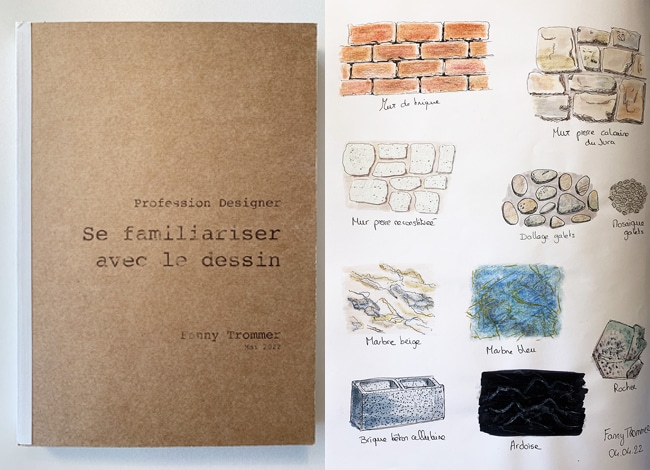 Profession Designer
Se familiariser
avec le dessin
Fanny Trommer
Mai 2022
Mur de brique
Mur pierre calcaire
du Jura
Mur pierre reconstituée
Dallage galets
Mosaïque
galets
Marbre beige
Marbre bleu
Rocher
Brique béton cellulaire
Ardoise
Fanny Tromme
04.04.22